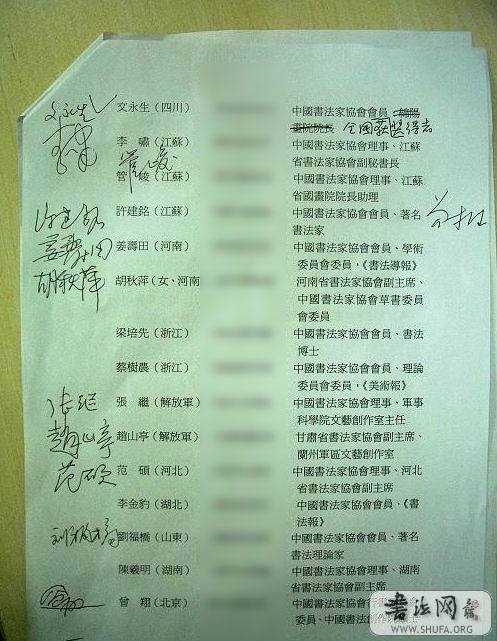 文永生
文永生（四川） 中國書法家協會會員、綿陽
畫院院長 全国获奖得者
李 嘯（江蘇） 中國書法家協會理事、江蘇
省書法家協會副秘書長
管峻
管 峻（江蘇） 中國書法家協會理事、江蘇
省國畫院院長助理
許建銘（江蘇） 中國書法家協會會員、著名
書法家
姜壽田（河南） 中國書法家協會會員、學術
委員會委員，《書法導報》
胡秋萍
胡秋萍（女、河南 河南省書法家協會副主席、
中國書法家協會草書委員
會委員
梁培先（浙江） 中國書法家協會會員、書法
博士
蔡樹農（浙江） 中國書法家協會會員、理論
委員會委員，《美術報》
張 繼（解放軍） 中國書法家協會理事、軍事
科學院文藝創作室主任
趙山亭
趙山亭（解放軍） 甘肅省書法家協會副主席、
蘭州軍區文藝創作室
范硕
范 碩（河北） 中國書法家協會理事、河北
省書法家協會副主席
李金豹（湖北） 中國書法家協會會員、《書
法報》
劉福橋（山東） 中國書法家協會會員、著名
書法理論家
陳羲明（湖南） 中國書法家協會理事、湖南
省書法家協會副主席
曾 翔（北京） 中國書法家協會
委員、中國書法
书法网
WWW.SHUFA.ORG